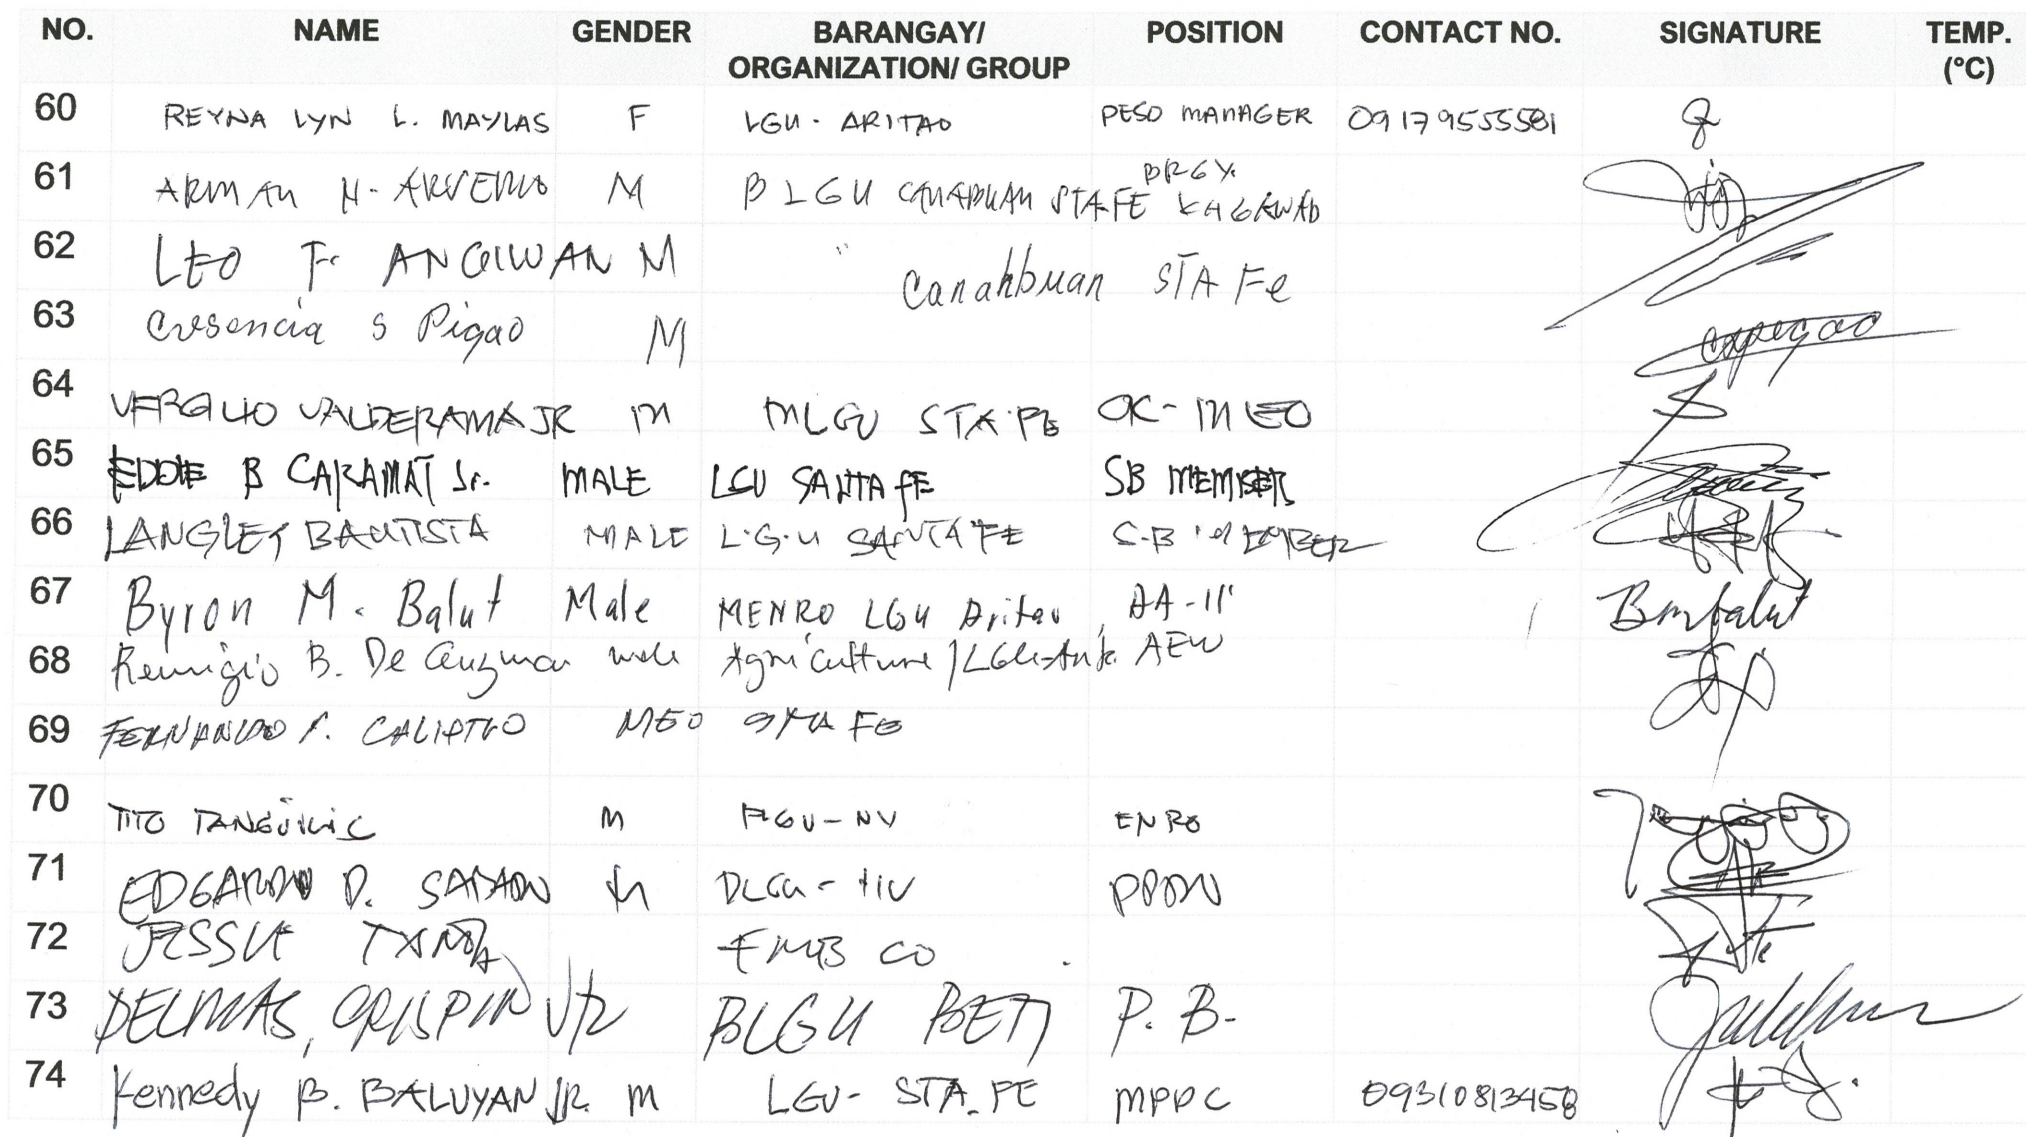 NO. NAME GENDER BARANGAY/ ORGANIZATION/ GROUP POSITION CONTACT NO. SIGNATURE TEMP. (°C)
60 REYNA LYN L. MAYLAS F LGU - ARITAO PESO MANAGER 09179555581
61 ARMAN N. M B LGU CANABUAN STA FE BRGY. KAGAWAD
62 LEO F. ANGIWAN M " Canahbuan STA Fe
63 Cresencia S Pigao M
64 VERGILIO VALDERAMA JR M MLGU STA. FE OIC - MEO
65 EDDIE B CARAMAT Sr. MALE LGU SANTA FE SB MEMBER
66 LANGLEY BAUTISTA MALE L.G.U SANTA FE S.B MEMBER
67 Byron M. Balut Male MENRO LGU Aritao AA-II
68 Remigio B. De Guzman male Agriculture/LGU- AEW
69 FERNANDO MEO STA FE
70 TITO TANGUILIG M PLGU-NV ENRO
71 EDGARDO D. M
72 FMB CO
73 DELMAS, CRISPIN JR BLGU P. B.
74 Kennedy B. BALUYAN JR. M LGU- STA. FE MPDC 09310813458